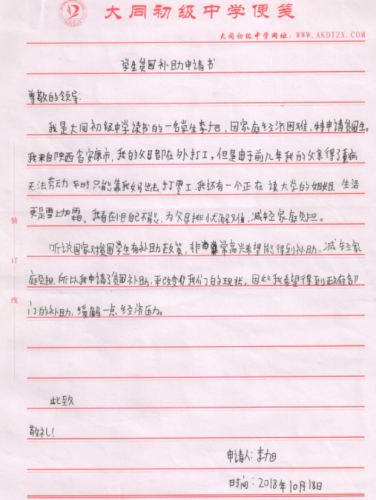 大同初级中学便笺
大同初级中学网址：WWW.AKDTZX.COM
学生贫困补助申请书
尊敬的领导：
我是大同初级中学读书的一名学生李旭，因家庭经济困难，特申请贫困生。
我来自陕西省安康市，我的父母都在外打工。但是由于前几年我的父亲得了重病
无法劳动，平时只能靠我妈出去打零工，我还有一个正在读大学的姐姐，生活
更是雪上加霜，我看在眼里自己不能为父母排忧解难，减轻家庭负担。
听说国家对贫困学生有补助政策，非常高兴希望能得到补助，减轻家
庭负担，所以我申请了贫困补助，更改变我们的现状，因此我希望得到政府部
门的补助，缓解一点经济压力。
此致
敬礼！
申请人：李旭
时间：2018年10月18日
装
订
线